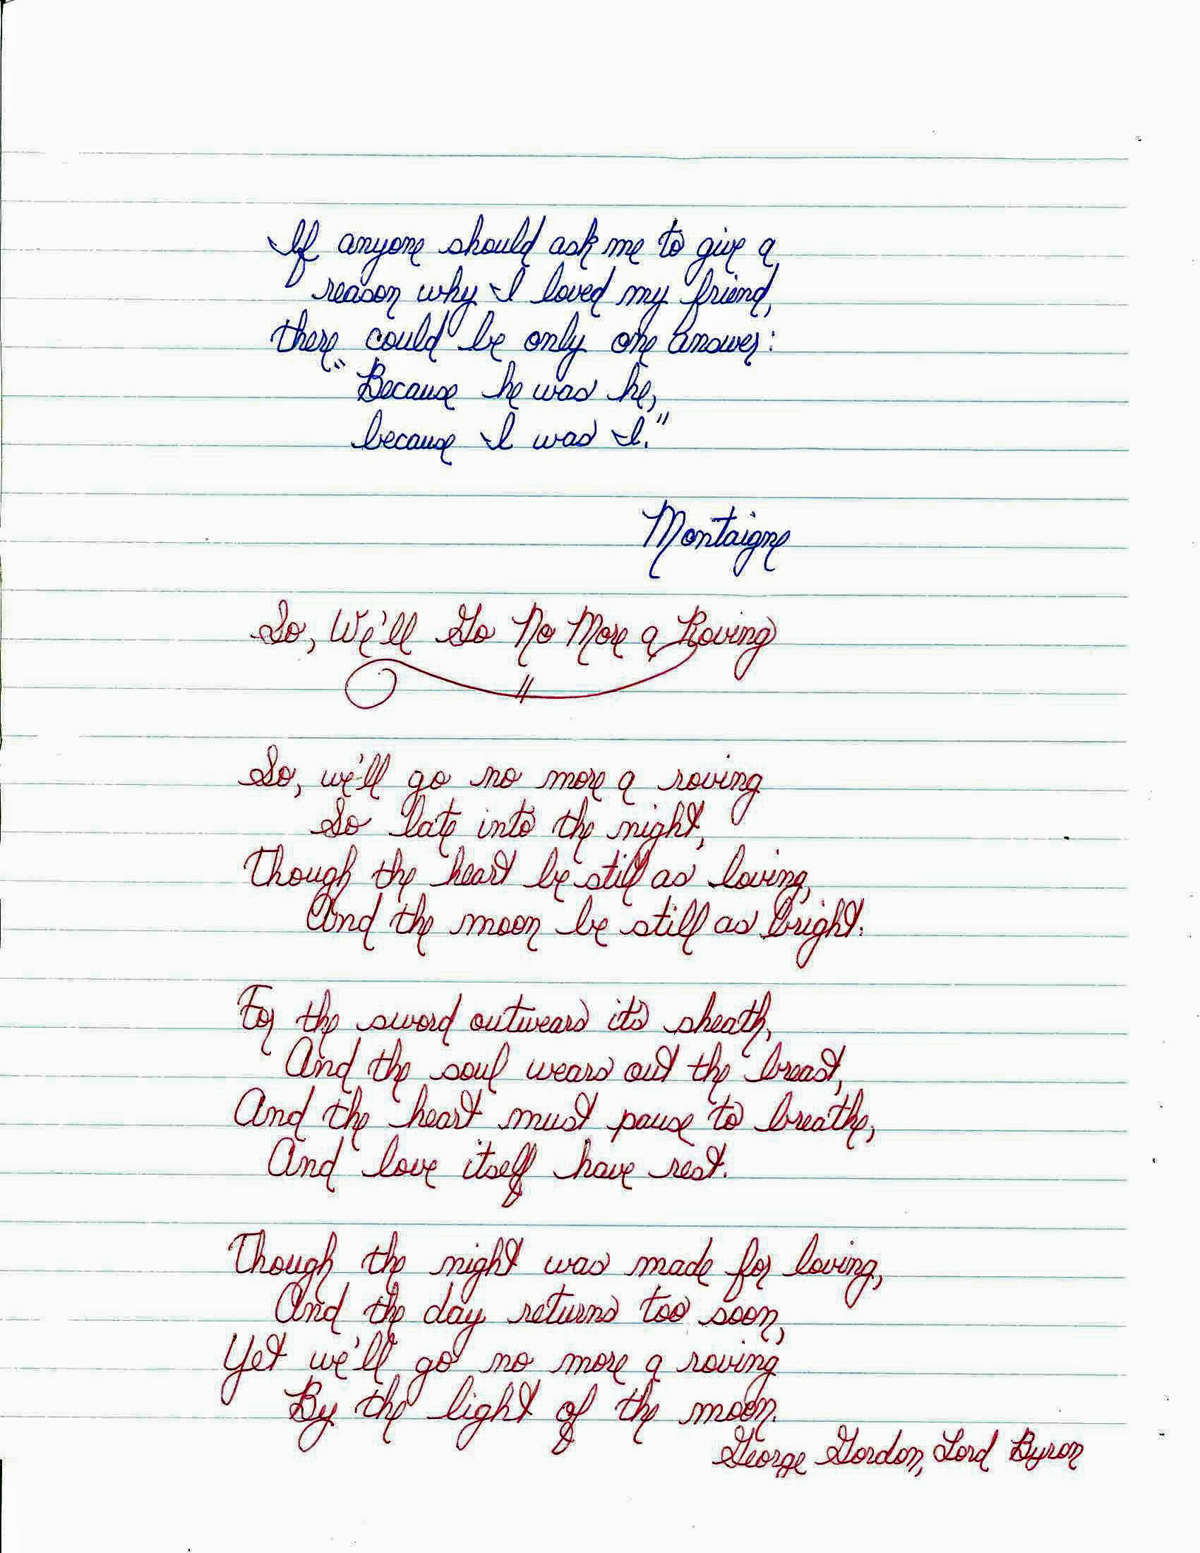 If anyone should ask me to give a
reason why I loved my friend,
there could be only one answer:
"Because he was he,
because I was I."
Montaigne
So, We'll Go No More a Roving
So, we'll go no more a roving
So late into the night,
Though the heart be still as loving,
And the moon be still as bright.
For the sword outwears its sheath,
And the soul wears out the breast,
And the heart must pause to breathe,
And love itself have rest.
Though the night was made for loving,
And the day returns too soon,
Yet we'll go no more a roving
By the light of the moon.
George Gordon, Lord Byron